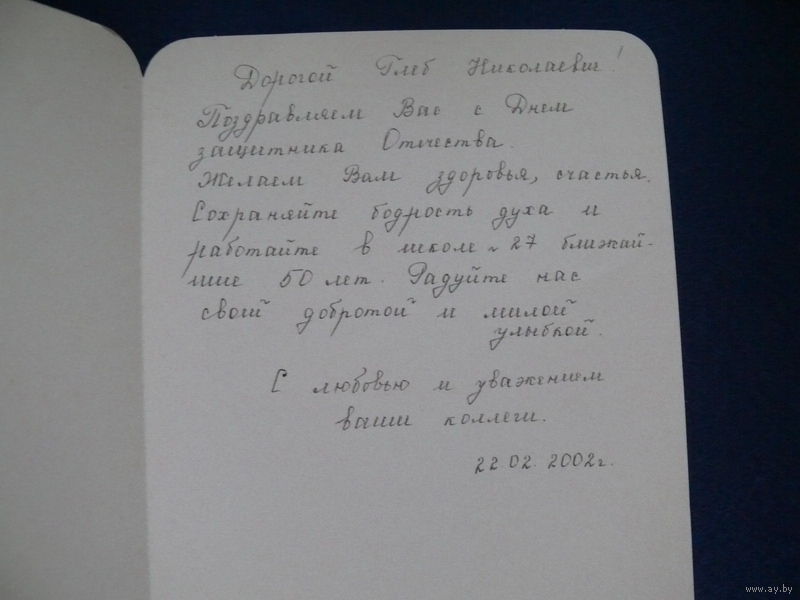 Дорогой Глеб Николаевич!
Поздравляем Вас с Днем
защитника Отечества.
Желаем Вам здоровья, счастья.
Сохраняйте бодрость духа и
работайте в школе № 27 ближай-
шие 50 лет. Радуйте нас
своей добротой и милой
улыбкой.
С любовью и уважением
ваши коллеги.
22.02.2002г.
www.ay.by